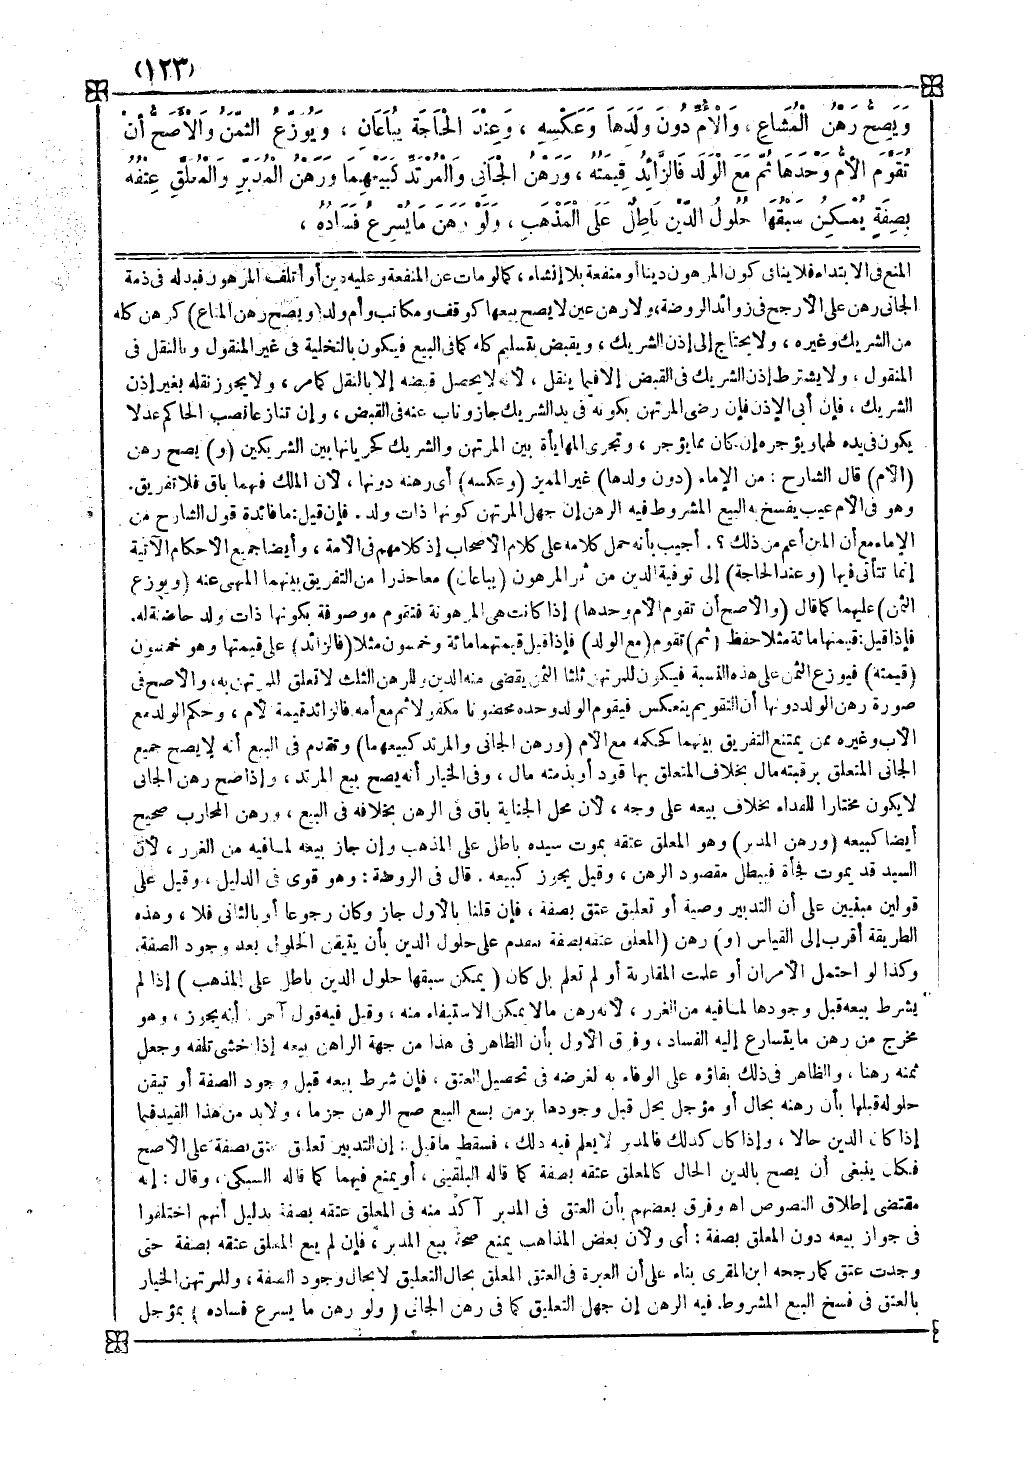 (١٢٣)
وَيَصِحُّ رَهْنُ الْمُشَاعِ ، وَالْأُمِّ دُونَ وَلَدِهَا وَعَكْسِهِ ، وَعِنْدَ الْحَاجَةِ يُبَاعَانِ ، وَيُوَزَّعُ الثَّمَنُ وَالْأَصَحُّ أَنْ
تُقَوَّمَ الْأُمُّ وَحْدَهَا ثُمَّ مَعَ الْوَلَدِ فَالزَّائِدُ قِيمَتُهُ ، وَرَهْنُ الْجَانِي وَالْمُرْتَدِّ كَبَيْعِهِمَا وَرَهْنُ الْمُدَبَّرِ وَالْمُعَلَّقِ عِتْقُهُ
بِصِفَةٍ يُمْكِنُ سَبْقُهَا حُلُولَ الدَّيْنِ بَاطِلٌ عَلَى الْمَذْهَبِ ، وَلَوْ رَهَنَ مَا يَسْرُعُ فَسَادُهُ ،
المنع فى الابتداء فلا ينافى كون المرهون دينا أو منفعة بلا إنشاء ، كما لو مات عن المنفعة وعليه دين أو أتلف المرهون فبدله فى ذمة
الجانى رهن على الأرجح فى زوائد الروضة، ولا رهن عين لا يصح بيعها كوقف ومكاتب وأم ولد (ويصح رهن المشاع) كرهن كله
من الشريك وغيره ، ولا يحتاج إلى إذن الشريك ، ويقبض بتسليم كله كما فى البيع فيكون بالتخلية فى غير المنقول وبالنقل فى
المنقول ، ولا يشترط إذن الشريك فى القبض إلا فيما ينقل ، لأنه لا يحصل قبضه إلا بالنقل كما مر ، ولا يجوز نقله بغير إذن
الشريك ، فإن أبى الإذن فإن رضى المرتهن بكونه فى يد الشريك جاز وناب عنه فى القبض ، وإن تنازعا نصب الحاكم عدلا
يكون فى يده لهما ويؤجره إن كان مما يؤجر ، وتجرى المهايأة بين المرتهن والشريك كجريانها بين الشريكين (و) يصح رهن
(الأم) قال الشارح : من الإماء (دون ولدها) غير المميز (وعكسه) أى رهنه دونها ، لأن الملك فيهما باق فلا تفريق.
وهو فى الأم عيب يفسخ به البيع المشروط فيه الرهن إن جهل المرتهن كونها ذات ولد . فإن قيل: ما فائدة قول الشارح من
الإماء مع أن المتن أعم من ذلك ؟ . أجيب بأنه حمل كلامه على كلام الأصحاب إذ كلامهم فى الأمة ، وأيضا جميع الأحكام الآتية
إنما تتأتى فيها (وعند الحاجة) إلى توفية الدين من ثمن المرهون (يباعان) معا حذرا من التفريق بينهما المنهى عنه (ويوزع
الثمن) عليهما كما قال (والأصح أن تقوم الأم وحدها) إذا كانت هى المرهونة فتقوم موصوفة بكونها ذات ولد حاضنة له.
فإذا قيل: قيمتها مائة مثلا حفظ (ثم) تقوم (مع الولد) فإذا قيل قيمتهما مائة وخمسون مثلا (فالزائد) على قيمتها وهو خمسون
(قيمته) فيوزع الثمن على هذه النسبة فيكون للمرتهن ثلثا الثمن يقضى منه الدين وللرهن الثلث لا تعلق للمرتهن به، والأصح فى
صورة رهن الولد دونها أن التقويم ينعكس فيقوم الولد وحده محضونا مكفولا ثم مع أمه فالزائد قيمة لأم ، وحكم الولد مع
الأب وغيره ممن يمتنع التفريق بينهما كحكمه مع الأم (ورهن الجانى والمرتد كبيعهما) وتقدم فى البيع أنه لا يصح جميع
الجانى المتعلق برقبته مال بخلاف المتعلق بها قود أو بذمته مال ، وفى الخيار أنه يصح بيع المرتد ، وإذا صح رهن الجانى
لا يكون مختارا للفداء بخلاف بيعه على وجه ، لأن محل الجناية باق فى الرهن بخلافه فى البيع ، ورهن المحارب صحيح
أيضا كبيعه (ورهن المدبر) وهو المعلق عتقه بموت سيده باطل على المذهب وإن جاز بيعه لما فيه من الغرر ، لأن
السيد قد يموت فجأة فيبطل مقصود الرهن ، وقيل يجوز كبيعه . قال فى الروضة : وهو قوى فى الدليل ، وقيل على
قولين مبنيين على أن التدبير وصية أو تعليق عتق بصفة ، فإن قلنا بالأول جاز وكان رجوعا أو بالثانى فلا ، وهذه
الطريقة أقرب إلى القياس (و) رهن (المعلق عتقه بصفة) تتقدم على حلول الدين بأن يتيقن الحلول بعد وجود الصفة.
وكذا لو احتمل الأمران أو علمت المقارنة أو لم تعلم بل كان ( يمكن سبقها حلول الدين باطل على المذهب ) إذا لم
يشرط بيعه قبل وجودها لما فيه من الغرر ، لأنه رهن ما لا يمكن الاستيفاء منه ، وقيل فيه قول آخر : أنه يجوز ، وهو
مخرج من رهن ما يتسارع إليه الفساد ، وفرق الأول بأن الظاهر فى هذا من جهة الراهن بيعه إذا خشى تلفه وجعل
ثمنه رهنا ، والظاهر فى ذلك بقاؤه على الوفاء به لغرضه فى تحصيل العتق ، فإن شرط بيعه قبل وجود الصفة أو تيقن
حلوله قبلها بأن رهنه بحال أو مؤجل يحل قبل وجودها بزمن يسع البيع صح الرهن جزما ، ولا بد من هذا القيد فيما
إذا كان الدين حالا ، وإذا كان كذلك فالمدبر لا يعلم فيه ذلك ، فسقط ما قيل : إن التدبير تعليق عتق بصفة على الأصح
فكان ينبغى أن يصح بالدين الحال كالمعلق عتقه بصفة كما قاله البلقينى ، أو يمنع فيهما كما قاله السبكى ، وقال : إنه
مقتضى إطلاق النصوص اه‍ وفرق بعضهم بأن العتق فى المدبر آكد منه فى المعلق عتقه بصفة بدليل أنهم اختلفوا
فى جواز بيعه دون المعلق بصفة : أى ولأن بعض المذاهب يمنع صحة بيع المدبر ، فإن لم يبع المعلق عتقه بصفة حتى
وجدت عتق كما رجحه ابن المقرى بناء على أن العبرة فى العتق المعلق بحال التعليق لا بحال وجود الصفة ، وللمرتهن الخيار
بالعتق فى فسخ البيع المشروط فيه الرهن إن جهل التعليق كما فى رهن الجانى ( ولو رهن ما يسرع فساده ) بمؤجل